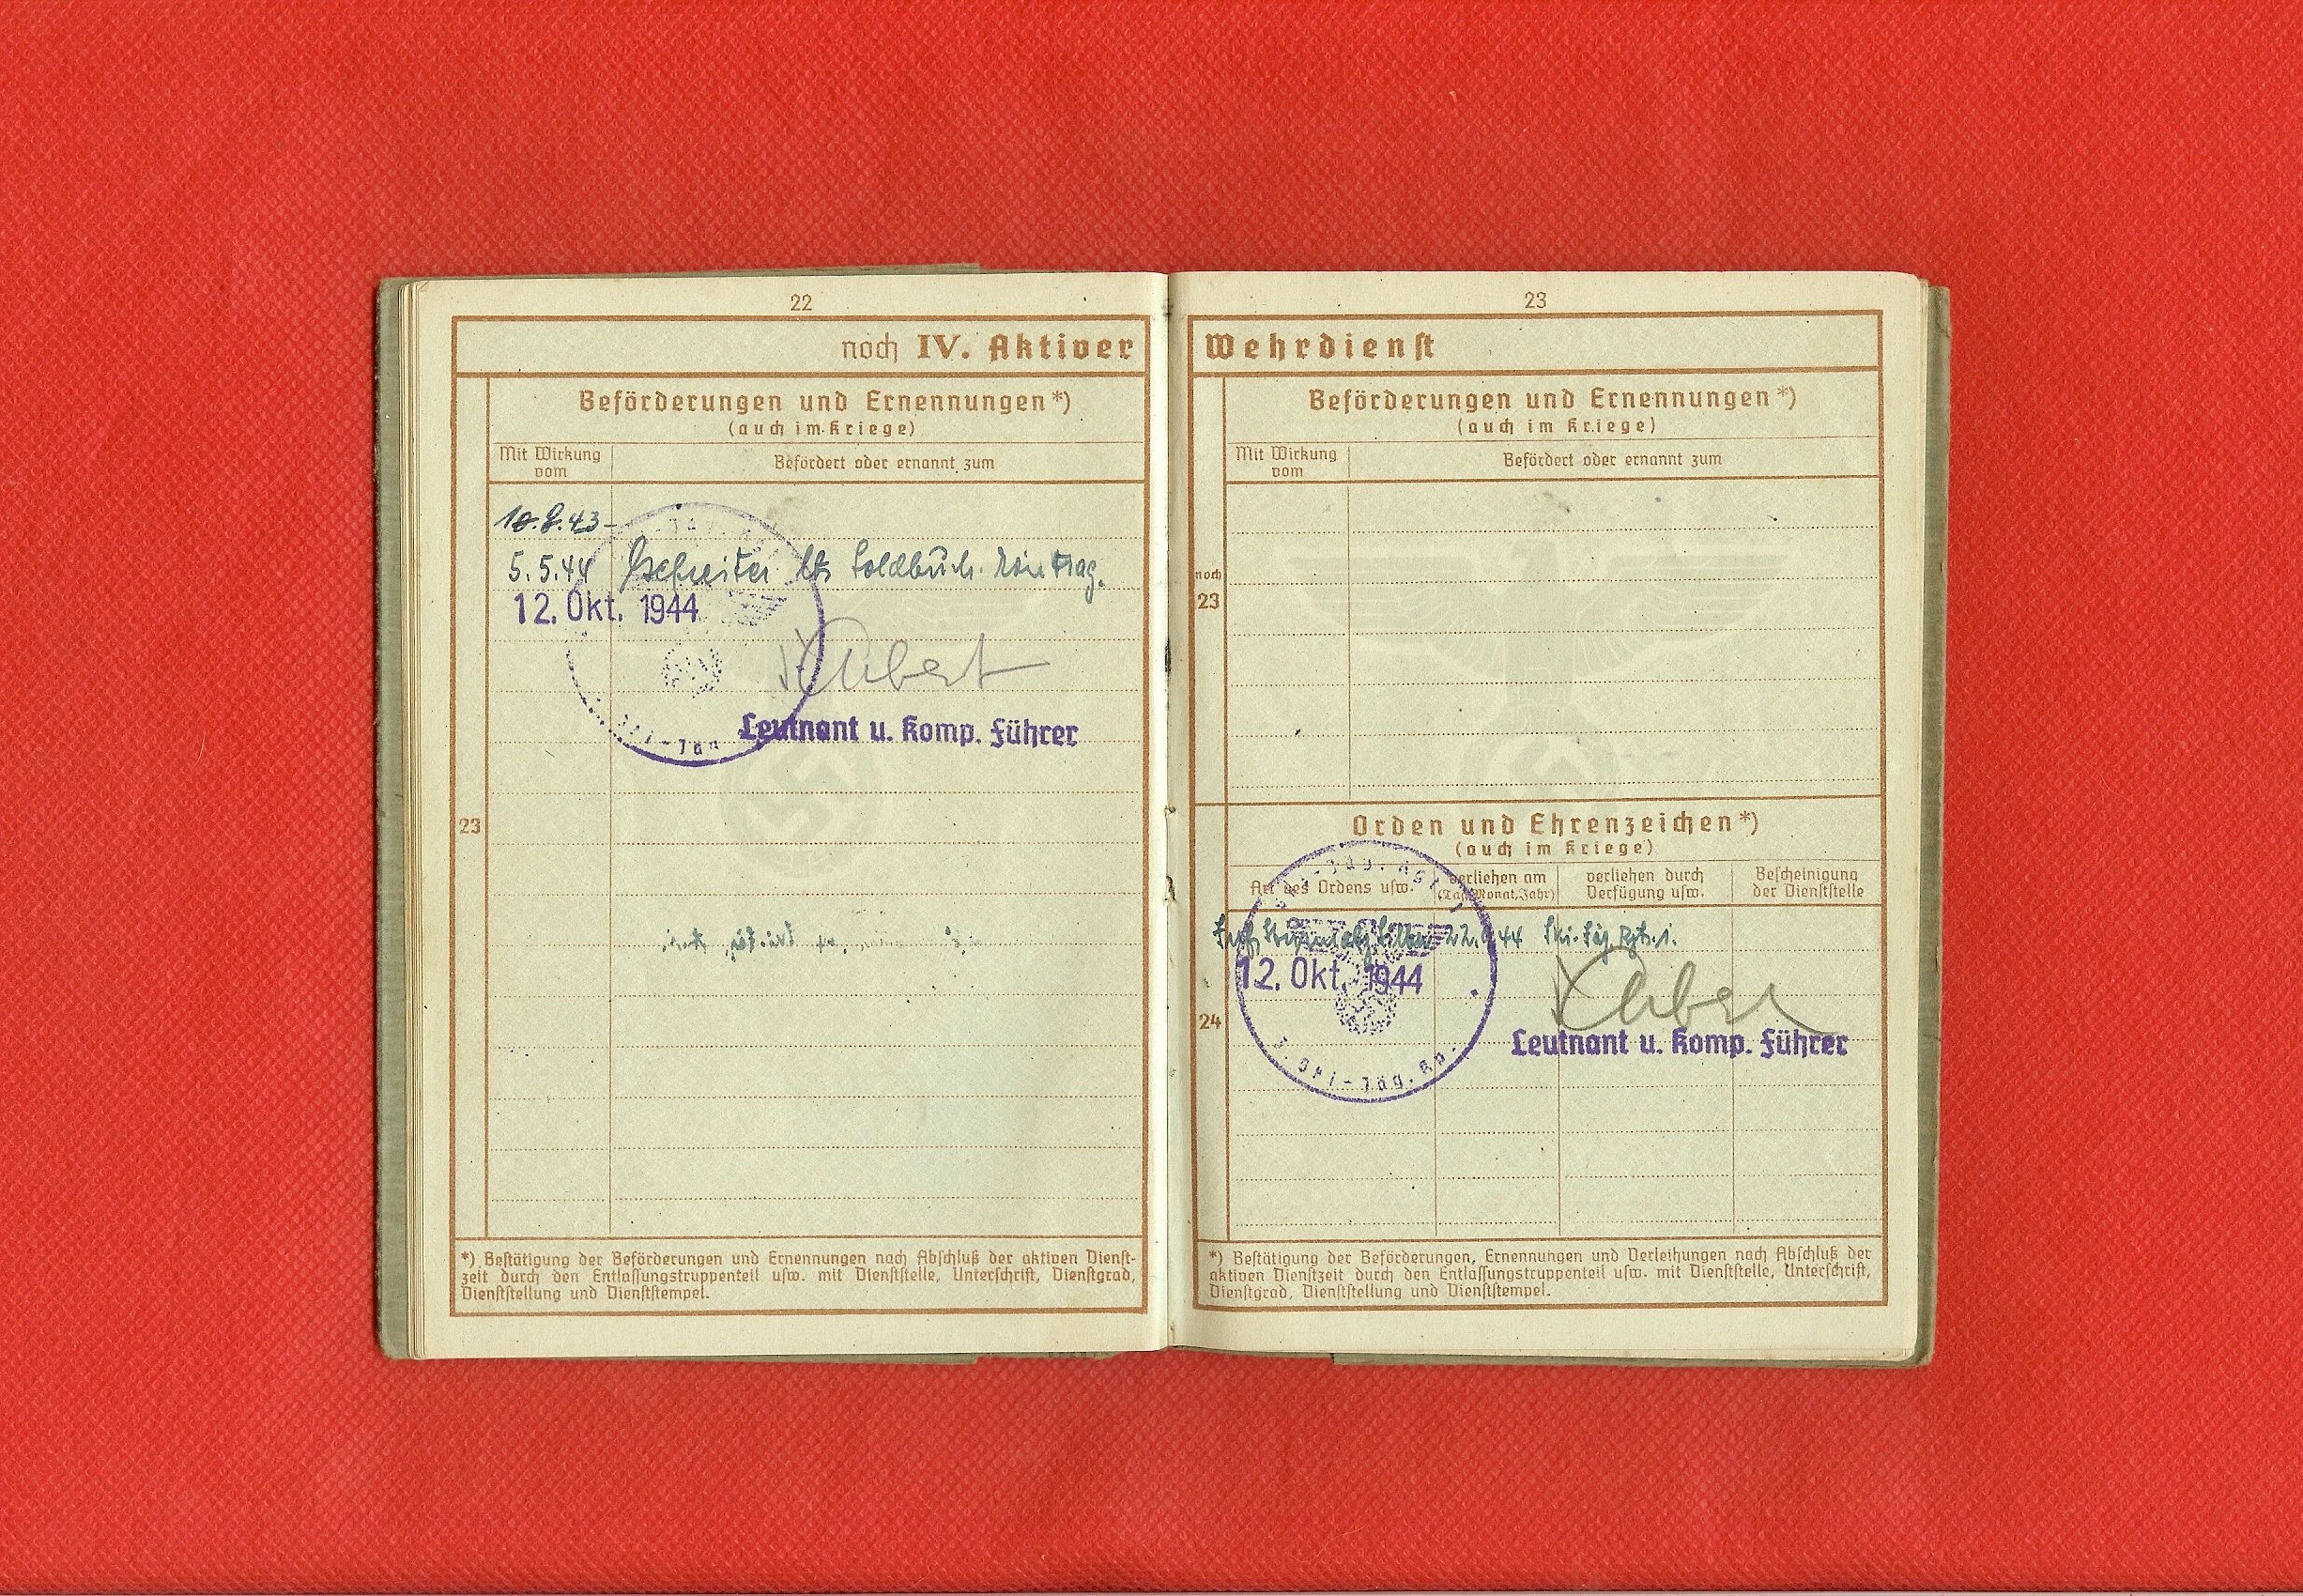 22
noch IV. Aktiver
Beförderungen und Ernennungen*)
(auch im Kriege)
Mit Wirkung vom
Befördert oder ernannt zum
5.5.44 Gefreiter lt. Soldbuch.
12. Okt. 1944
Leutnant u. Komp. Führer
23
*) Bestätigung der Beförderungen und Ernennungen nach Abschluß der aktiven Dienst-
zeit durch den Entlassungstruppenteil usw. mit Dienststelle, Unterschrift, Dienstgrad,
Dienststellung und Dienststempel.
23
Wehrdienst
Beförderungen und Ernennungen*)
(auch im Kriege)
Mit Wirkung vom
Befördert oder ernannt zum
noch
23
Orden und Ehrenzeichen*)
(auch im Kriege)
Art des Ordens usw.
verliehen am
(Tag, Monat, Jahr)
verliehen durch
Verfügung usw.
Bescheinigung
der Dienststelle
Ski-Jäg. Rgt. 1.
12. Okt. 1944
Leutnant u. Komp. Führer
Ski-Jäg.
24
*) Bestätigung der Beförderungen, Ernennungen und Verleihungen nach Abschluß der
aktiven Dienstzeit durch den Entlassungstruppenteil usw. mit Dienststelle, Unterschrift,
Dienstgrad, Dienststellung und Dienststempel.